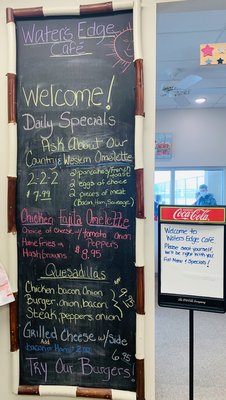 Waters Edge
Café
Welcome!
Daily Specials
Ask About Our
Country & Western Omelette
2-2-2
$7.99
2 pancakes/French Toast
2 eggs of choice
2 pieces of meat
(Bacon, Ham, Sausage)
Chicken fajita Omelette
Choice of Cheese w/ tomato onion
Home Fries or Peppers
Hashbrowns $8.95
Quesadillas
Chicken, bacon, Onion
Burger, onion, bacon
Steak, peppers, onion
9.75
Grilled Cheese w/ Side
Add
bacon or Ham
6.95
Try Our Burgers!
Coca-Cola
Welcome to
Waters Edge Café
Please seat yourself
we'll be right with you!
Full Menu & Specials!